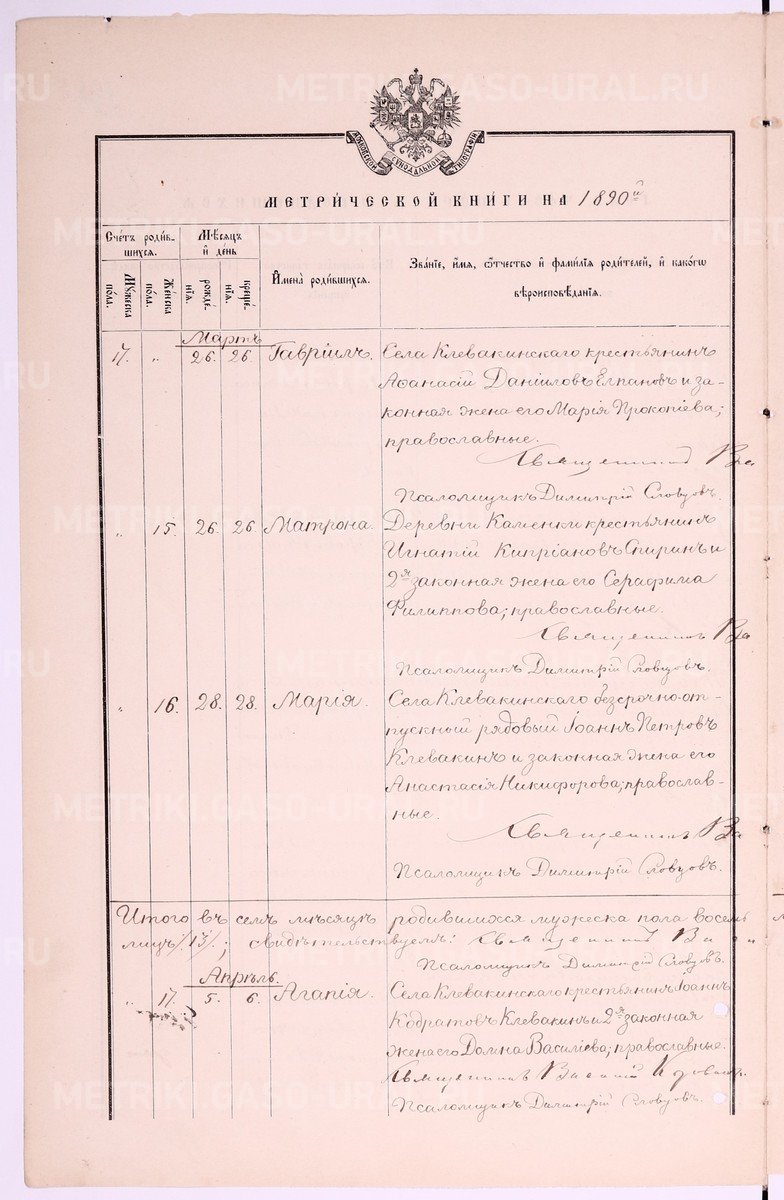 МОСКОВСКОЙ СѴНОДАЛЬНОЙ ТИПОГРАФІИ
МЕТРИ́ЧЕСКОЙ КНИ́ГИ НА 1890й
Сче́тъ роди́в-
шихся.
Мѣ́сяцъ
и҆ де́нь
Му́жеска
по́ла.
Же́нска
по́ла.
рожде́-
нія.
креще́-
нія.
И҆мена̀ роди́вшихся.
Зва́ніе, и҆́мя, ѻ҆́тчество и҆ фами́лія роди́телей, и҆ како́гѡ
вѣроисповѣ́данія.
Мартъ
17. „ 26. 26. Гавріилъ. Села Клевакинскаго крестьянинъ
Аѳанасій Даніиловъ Елпановъ и за-
конная жена его Марія Прокопіева;
православные.
Священникъ Ва
Псаломщикъ Димитрій Словцовъ.
„ 15. 26. 26. Матрона. Деревни Каменки крестьянинъ
Игнатій Кипріановъ Спиринъ и
2я законная жена его Серафима
Филиппова; православные.
Священникъ Ва
Псаломщикъ Димитрій Словцовъ.
„ 16. 28. 28. Марія. Села Клевакинскаго безсрочно-от-
пускный рядовый Іоаннъ Петровъ
Клевакинъ и законная жена его
Анастасія Никифорова; православ-
ные.
Священникъ Ва
Псаломщикъ Димитрій Словцовъ.
Итого въ семъ мѣсяцѣ родившихся мужеска пола восемь
лицъ /13/.; свидѣтельствуемъ: Священникъ Ва
Псаломщикъ Димитрій Словцовъ.
Апрѣль.
„ 17. 5. 6. Агапія. Села Клевакинскаго крестьянинъ Іоаннъ
Кодратовъ Клевакинъ и 2я законная
жена его Домна Василіева; православные.
Священникъ Василій
Псаломщикъ Димитрій Словцовъ.
METRIKI.GASO-URAL.RU